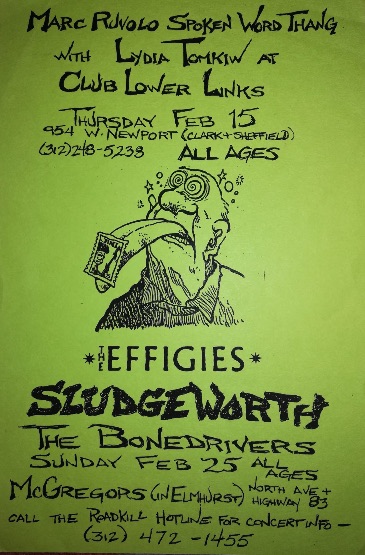 MARC RUVOLO SPOKEN WORD THANG
WITH LYDIA TOMKIW AT
CLUB LOWER LINKS
THURSDAY FEB 15
954 W. NEWPORT (CLARK + SHEFFIELD)
(312) 248-5238 ALL AGES
THE EFFIGIES
SLUDGEWORTH
THE BONEDRIVERS
SUNDAY FEB 25 ALL AGES
MCGREGORS (IN ELMHURST) NORTH AVE + HIGHWAY 83
CALL THE ROADKILL HOTLINE FOR CONCERT INFO —
(312) 472-1455